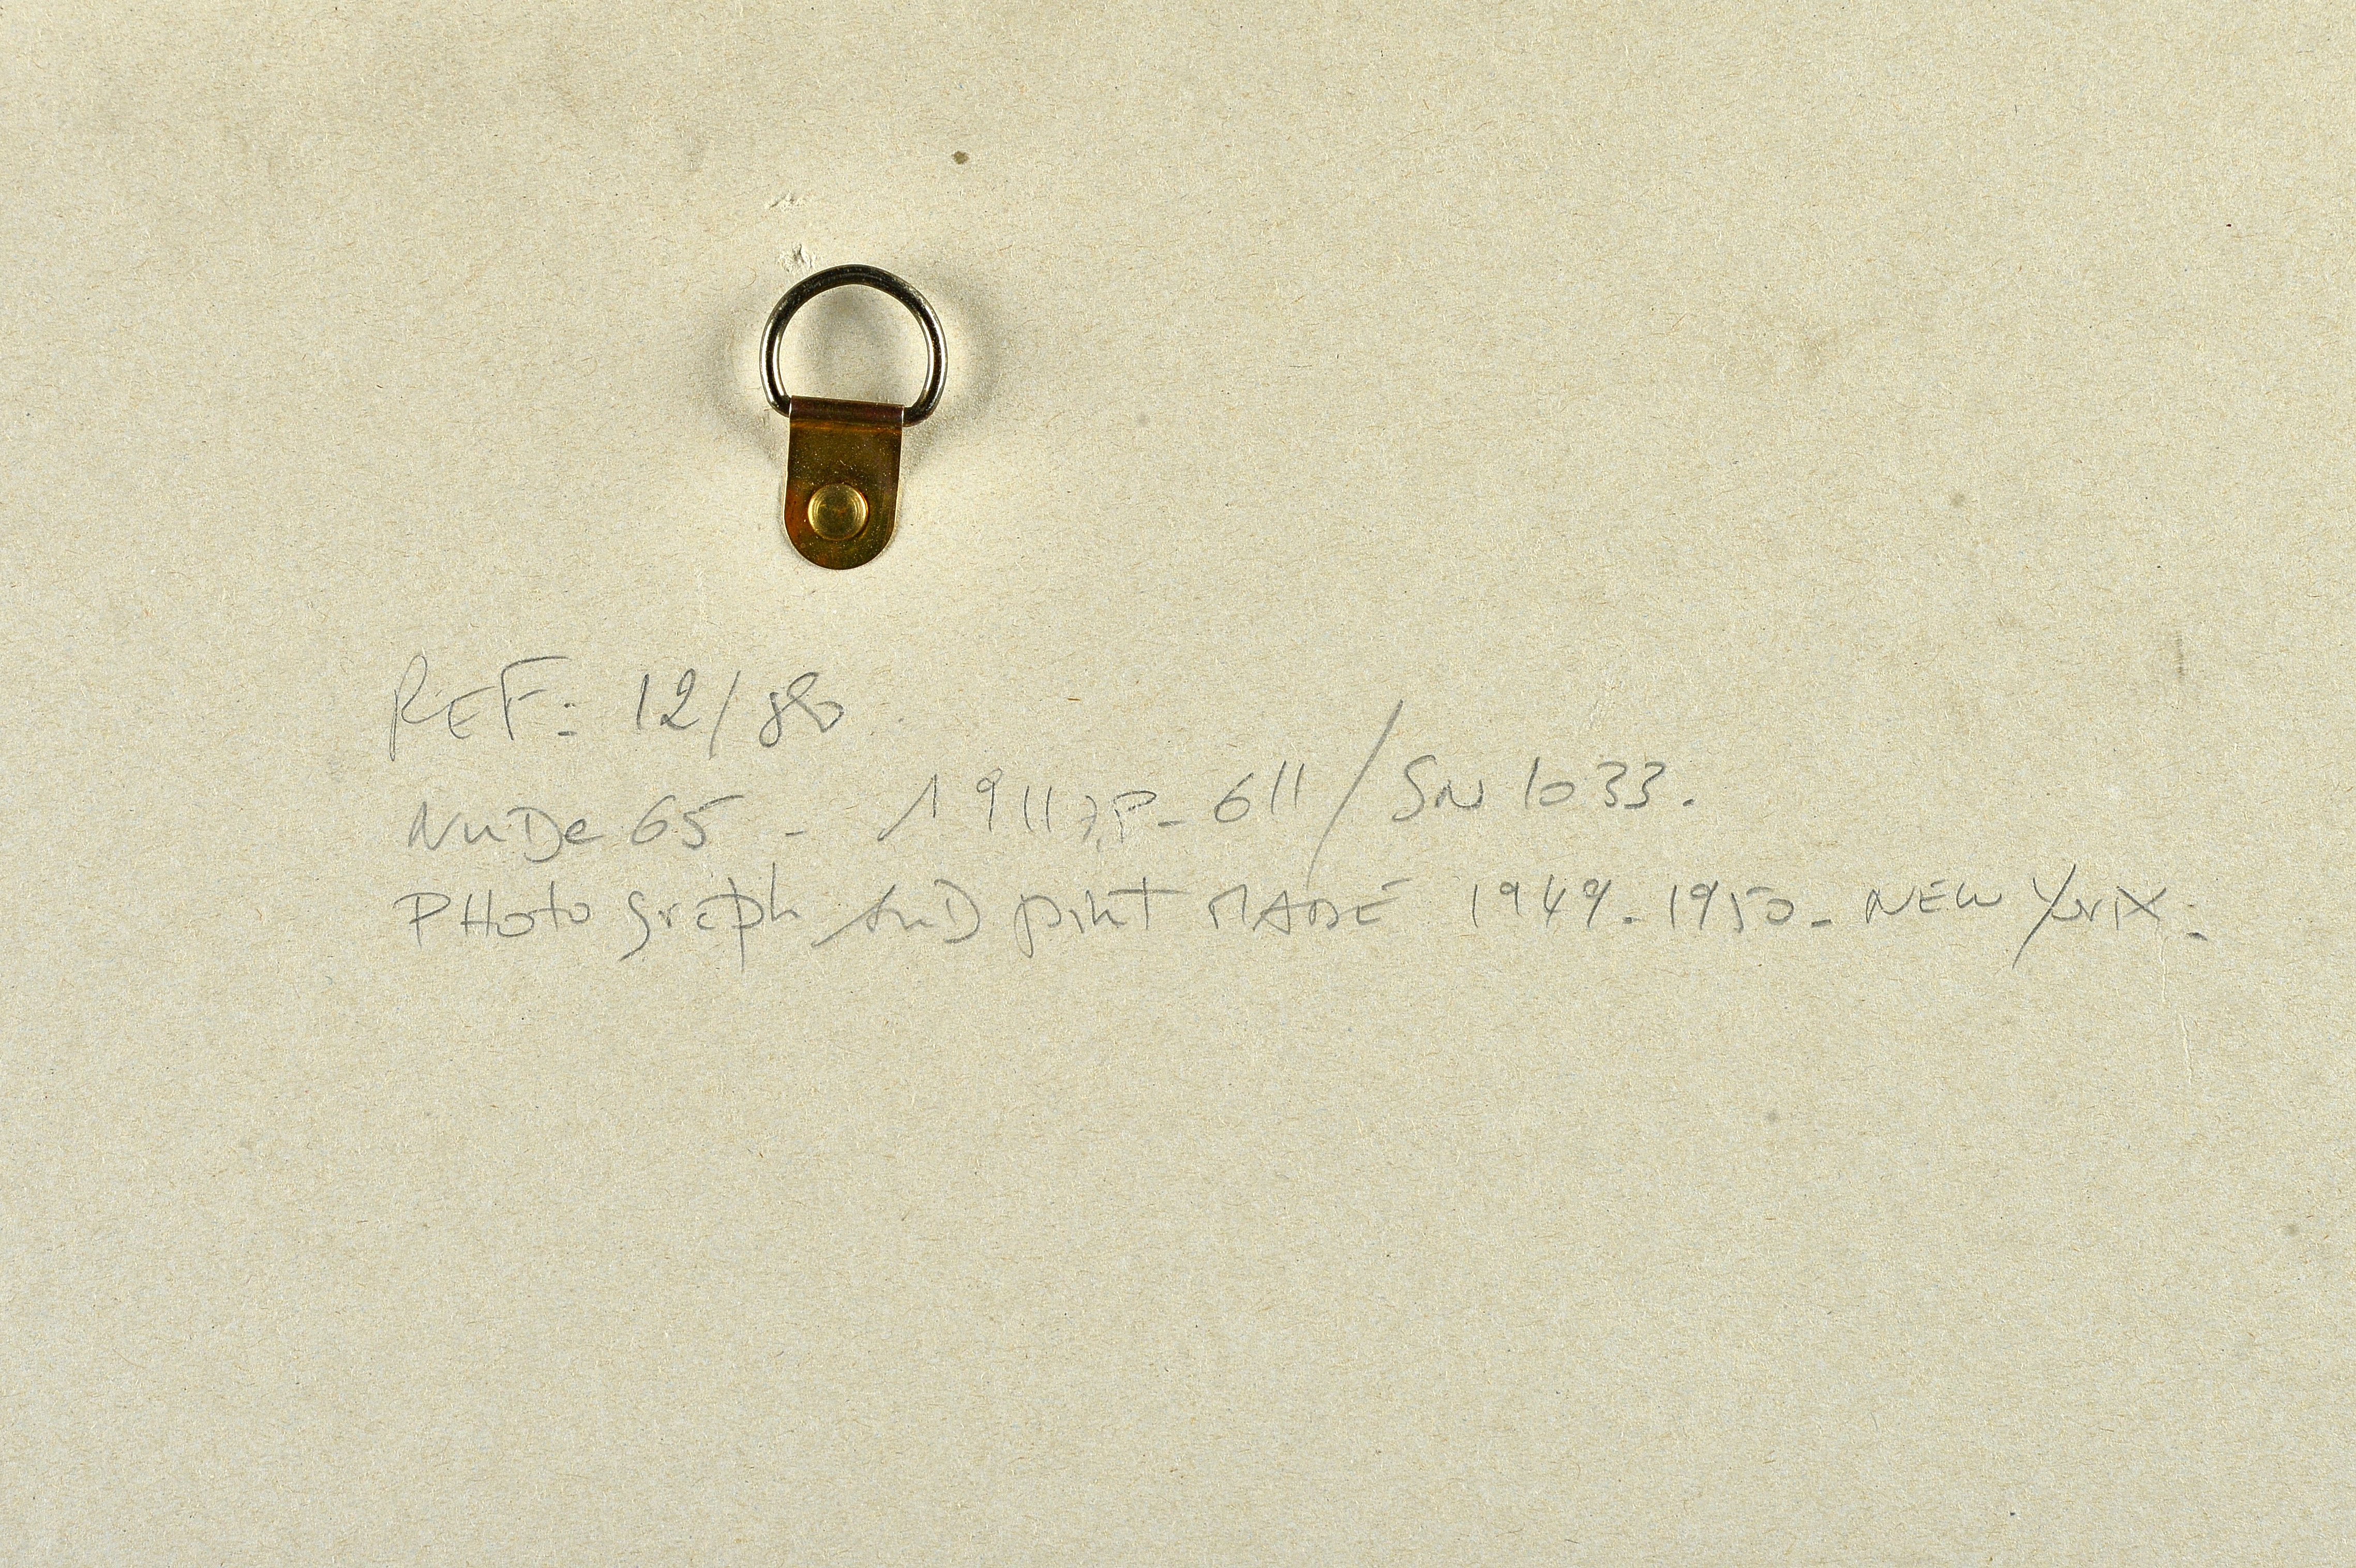 REF: 12/88
NuDe 65 - 19117P-611/SN 1033.
PHoto graph AnD print MADE 1949-1950-NEW YorK-